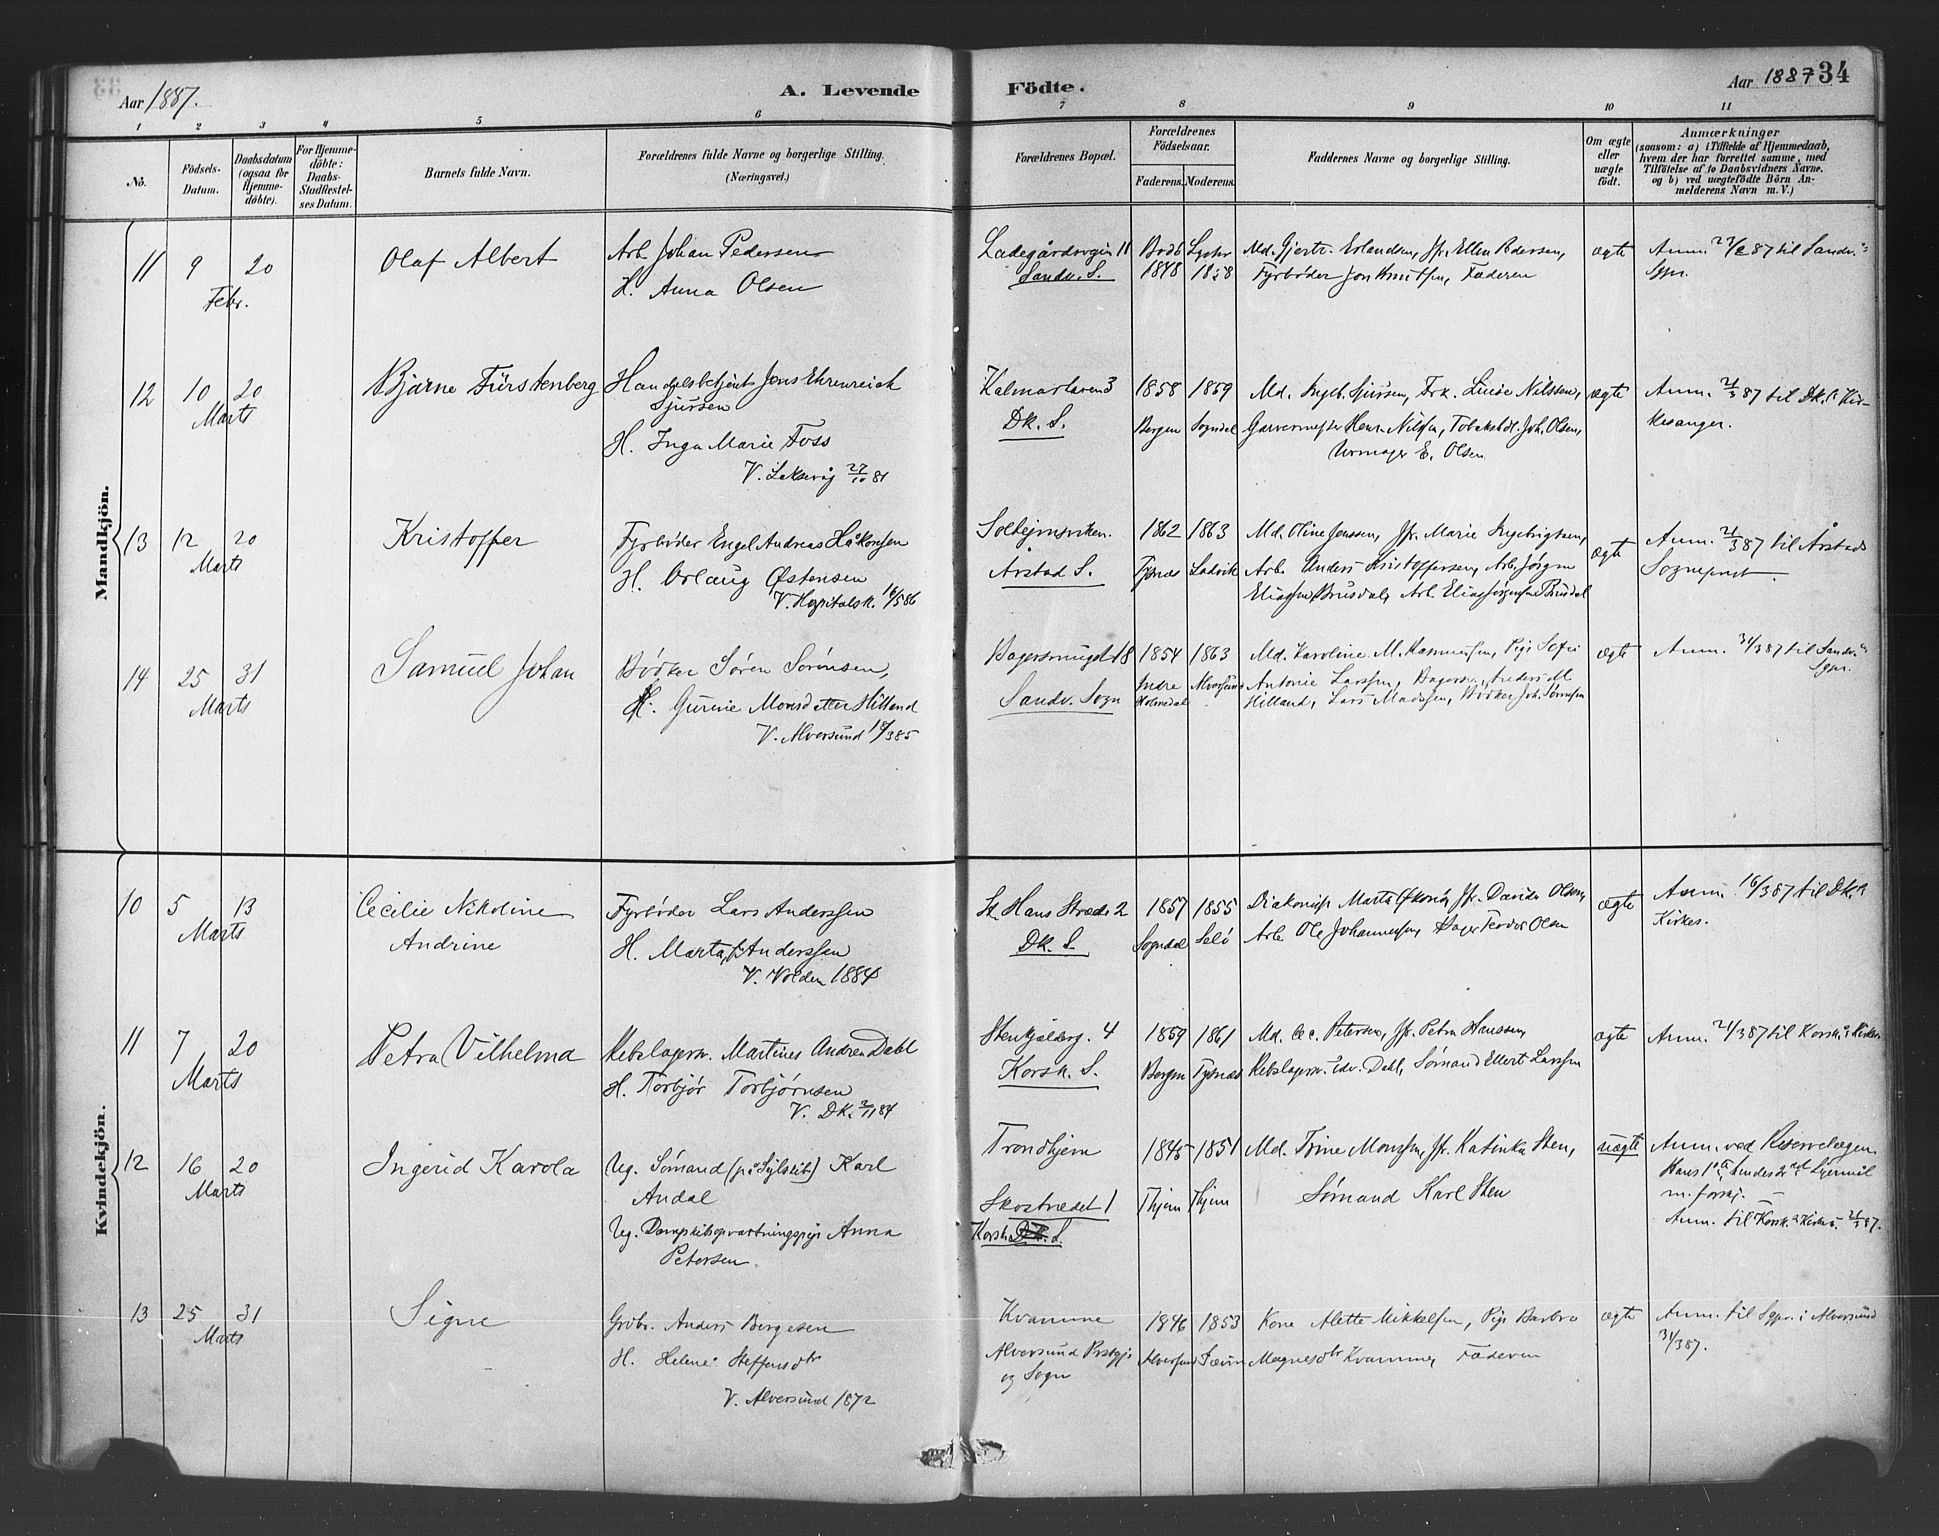 Aar 1887. A. Levende Födte. Aar 1887 34
1 2 3 4 5 6 7 8 9 10 11
No.
Födsels-Datum.
Daabsdatum (ogsaa for Hjemmedöbte).
For Hjemmedöbte: Daabs-Stadfæstelses Datum.
Barnets fulde Navn.
Forældrenes fulde Navne og borgerlige Stilling. (Næringsvei.)
Forældrenes Bopæl.
Forældrenes Födselsaar.
Faderens. Moderens.
Faddernes Navne og borgerlige Stilling.
Om ægte eller uægte födt.
Anmærkninger
(saasom: a) i Tilfælde af Hjemmedaab,
hvem der har forrettet samme, med
Tilföielse af to Daabsvidners Navne,
og b) ved uægtefödte Börn Anmelderens Navn m. V.)
Mandkjön.
11 9 Febr. 20
Olaf Albert
Arb. Johan Pedersen
H. Anna Olsen
Ladegårdsvgin 11
Sandv. S.
Bodö 1848
1858
Md. Gjertr. Erlandsen, Jfr. Ellen Pedersen,
Fyrböder Jon Knutsen, Faderen
ægte
Anm. 87 til Sandv.
Sgpr.
12 10 Marts 20
Bjarne Fürstenberg
Handelsbetjent Jens Ehrenreich
Sjursen
H. Inga Marie Foss
V. Laksevåg 27/10 81
Kalmarlaren 3
Dk. S.
1858 1859
Bergen Sogndal
Md. Ingeb. Sjursen, Frk. Luise Nilssen,
Garvermester Henr. Nilsen, Joh. Olsen,
Urmager E. Olsen
ægte
Anm. 21/3 87 til Dk.s Kirkesanger.
13 12 Marts 20
Kristoffer
Fyrböder Engel Andreas Håkonsen
H. Orlaug Østensen
V. Hospitalsk. 16/5 86
Solheimsviken.
Årstad S.
1862 1863
Tysnæs Ladvik
Md. Oline Jenssen, Jfr. Marie Ingebrigtsen,
Arb. Anders Kristoffersen, Arb. Jörgen
Eliassen Brusdal, Arb. Elias Jørgensen Brusdal
ægte
Anm. 21/3 87 til Årstads
Sogneprest
14 25 Marts 31
Samuel Johan
Bödker Sören Sørensen,
H. Gurine Monsdatter Hilland
V. Alversund 18/3 85
18
Sandv. Sogn
1854 1863
Indre Holmedal Alversund
Md. Karoline M. Rasmussen, Pige Sofie
Antonie Larssen, Bagersv. Anders M.
Hilland, Lars Madssen, Bödker Joh. Sørensen
ægte
Anm. 31/3 87 til Sandv.
Sgpr.
Kvindekjön.
10 5 Marts 13
Cecilie Nikoline
Andrine
Fyrböder Lars Anderssen
H. Marta Anderssen
V. Volden 1884
St. Hans Stræde 2
Dk. S.
1857 1855
Sogndal Selö
Diakonisse Marta, Jfr. Davida Olsen,
Arb. Ole Johannessen, Bager Teodor Olsen
ægte
Anm. 16/3 87 til Dk.s
Kirkes.
11 7 Marts 20
Petra Vilhelmd
Rebslagersv. Martines Andrea Dahl
H. Torbjör Torbjørnsen
V. Dk. 2/11 84
Stenkjelderg. 4
Korsk. S.
1859 1861
Bergen Tysnæs
Md. Cec. Petersen, Jfr. Petra Hanssen,
Rebslagersv. Edv. Dahl, Sømand Ellert Larssen
ægte
Anm. 21/3 87 til Korsk.s Kirkes.
12 16 Marts 20
Ingerid Karola
Ug. Sømand (på Sejlskib) Karl
Andal
Ug. Dampskibsopvartningspige Anna
Petersen.
Trondhjem
Skostrædet 1
Korsk. Dk. S.
1845 1851
Thjem Thjem
Md. Trine Monssen, Jfr. Katinka Sten,
Sømand Karl Sten
uægte
Anm. ved Reservelægen
Hans 1ste, hendes 2det Leiermål
m. forskj. –
Anm. til Korsk.s Kirkes. 21/3 87.
13 25 Marts 31
Signe
Grdbr. Anders Bergesen
H. Helene Steffensdtr
V. Alversund 1872
Kvamme
Alversund Prstgj.
og Sogn
1846 1853
Alversund
Kone Alette Mikkelsen, Pige Barbro
Magnesdtr Kvamme, Faderen
ægte
Anm. til Sgpr. i Alversund
31/3 87.